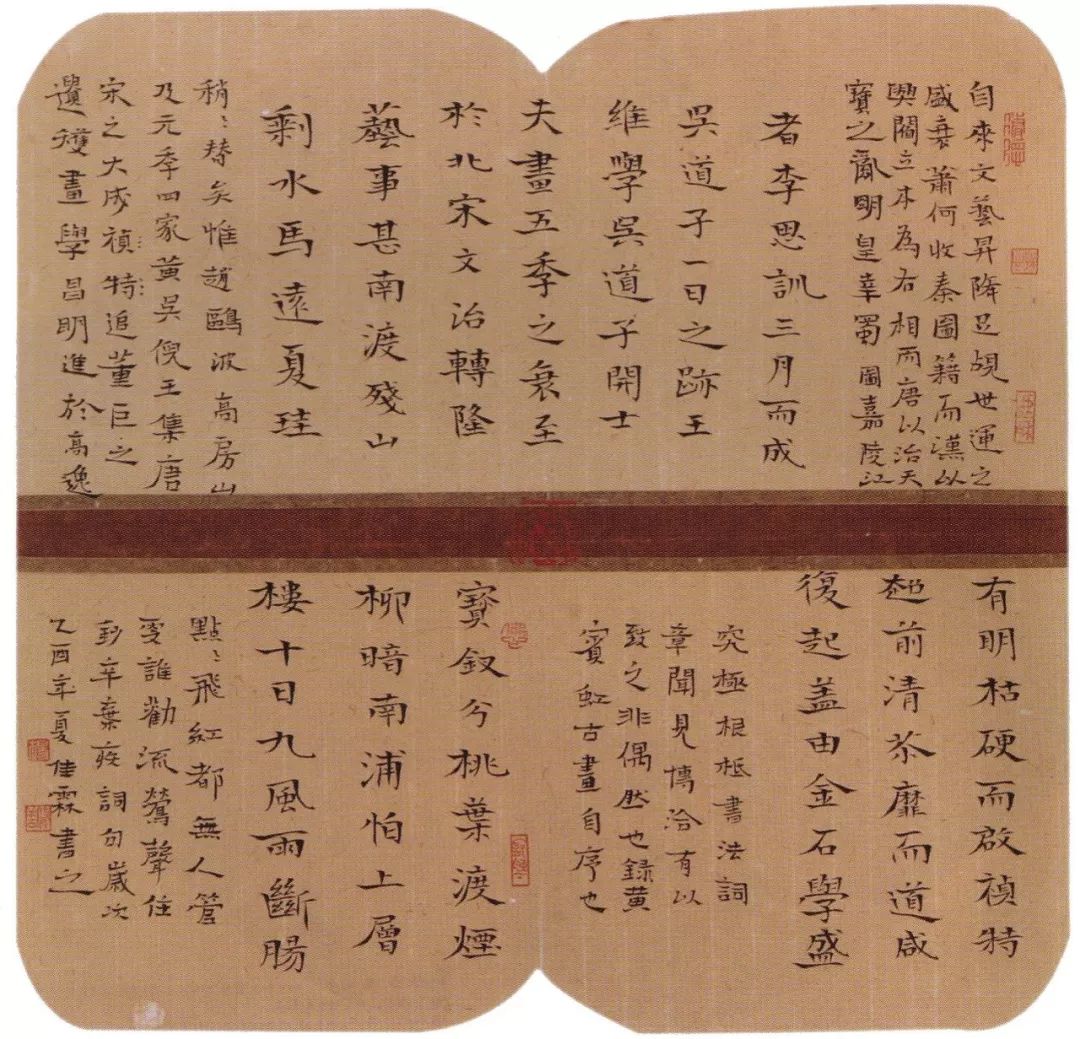 自來文藝昇降足覘世運之
盛衰蕭何收秦圖籍而漢以
興閻立本為右相而唐以治天
寶之亂明皇幸蜀圖嘉陵江
者李思訓三月而成
吳道子一日之跡王
維學吳道子開士
夫畫五季之衰至
於北宋文治轉隆
藝事甚南渡殘山
剩水馬遠夏珪
稍〻替矣惟趙鷗波高房山
及元季四家黃吳倪王集唐
宋之大成禎特追董巨之
遺矱畫學昌明進於高逸
有明枯硬而啟禎特
超前清苶靡而道咸
復起蓋由金石學盛
究極根柢書法詞
章聞見博洽有以
致之非偶然也錄黃
賓虹古畫自序也
寶釵分桃葉渡煙
柳暗南浦怕上層
樓十日九風雨斷腸
點〻飛紅都無人管
更誰勸流鶯聲住
鈔辛棄疾詞句歲次
乙酉年夏佳霖書之